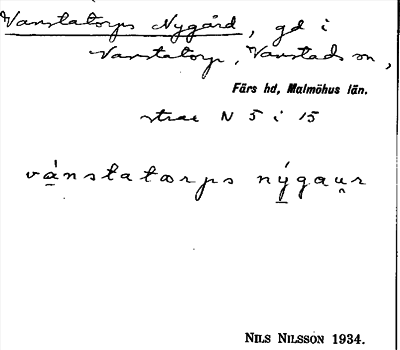 Vanstatorps Nygård, gd i
Vanstatorp, Vanstads sn,
Färs hd, Malmöhus län.
strax N 5 i 15
vá̱nstatɷrps ný̱gau̯r
NILS NILSSON 1934.